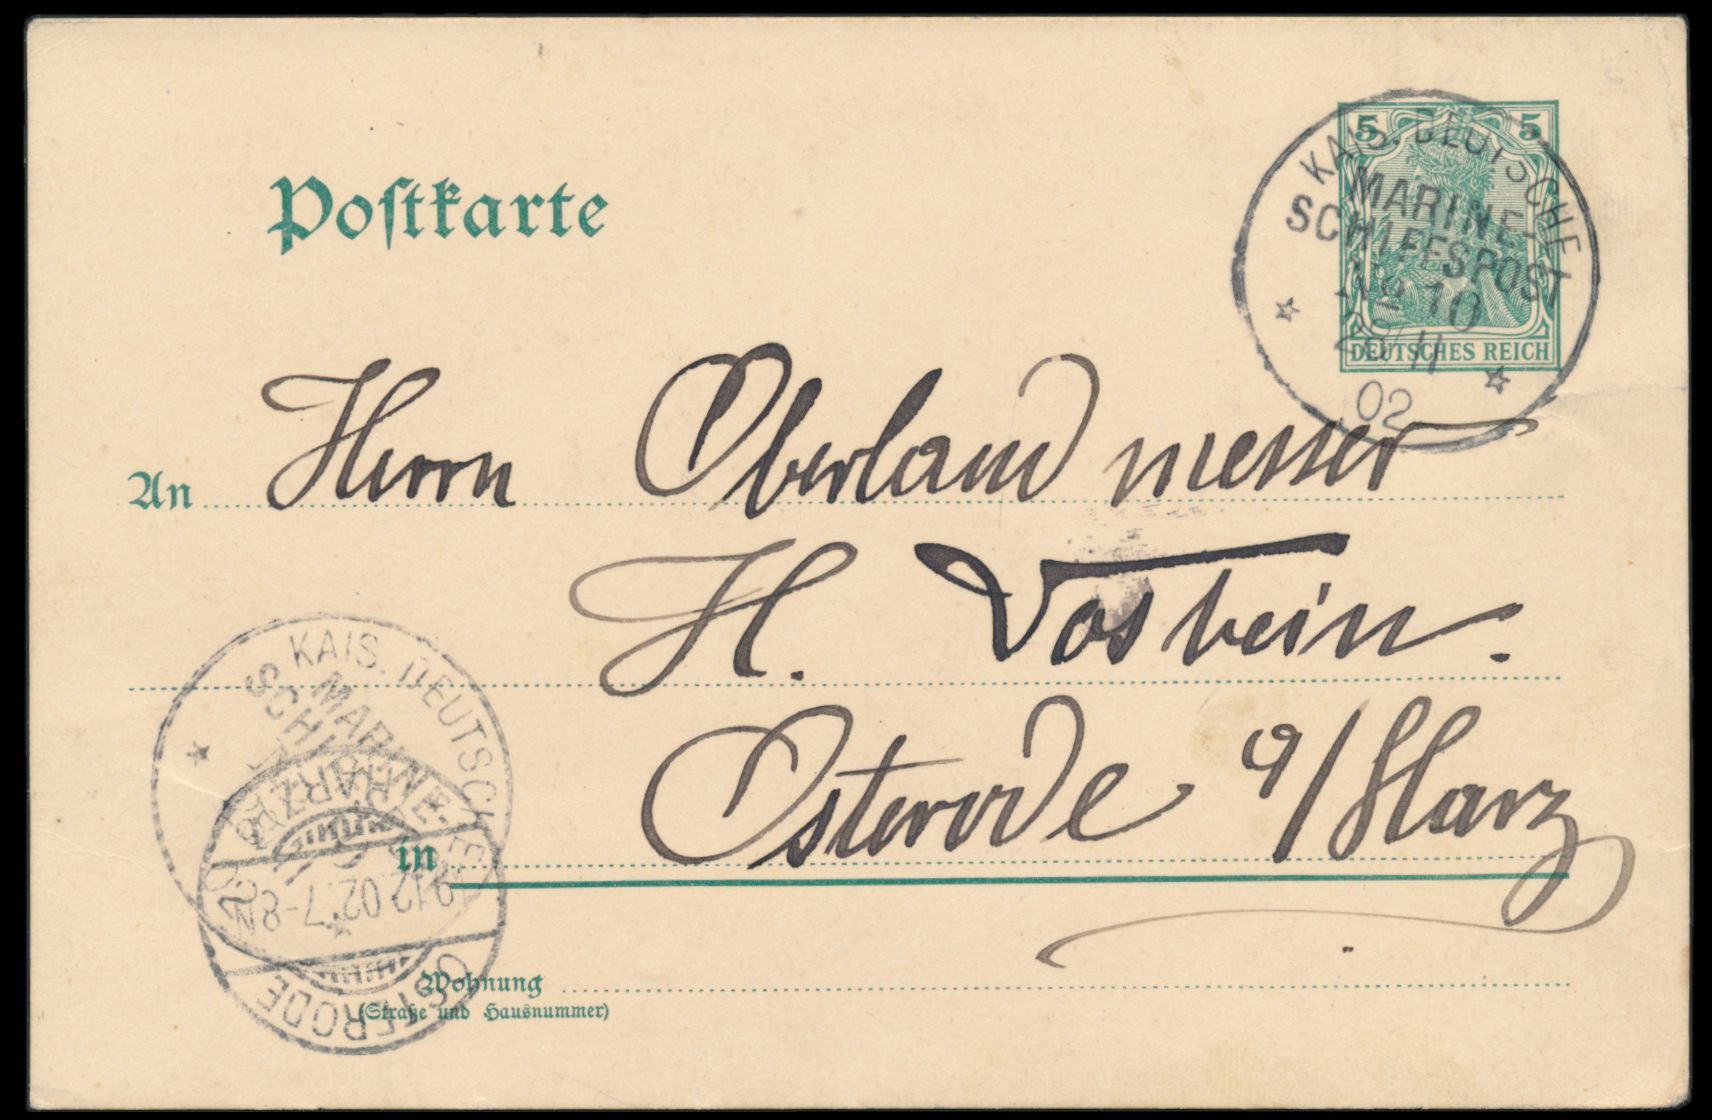 Postkarte
5 5
DEUTSCHES REICH
KAIS. DEUTSCHE
MARINE-
SCHIFFSPOST
No 10
28/11
02
An Herrn Oberlandmesser
H. Vosbein.
in Osterode a/Harz
Wohnung
(Straße und Hausnummer)
KAIS. DEUTSCHE
MARINE-
OSTERODE
HARZ
9.12.02.7-8N